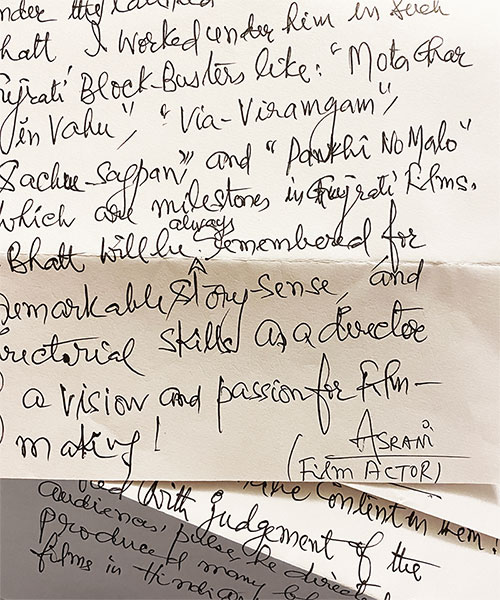 nder the
hatt I worked under him in such
ujrati Block-Busters like: "Mota Ghar
in Vahu", "Via-Viramgam",
Sachu-Sagpan", and "Pankhi No Malo"
which are milestones in Gujrati Films.
Bhatt will be always remembered for
remarkable story-sense, and
rectorial skills as a director
a vision and passion for Film-
making!
ASRANI
(FILM ACTOR)
the content in them!
with judgement of the
audiences' pulse, he direct
produced many bl
films in Hindi